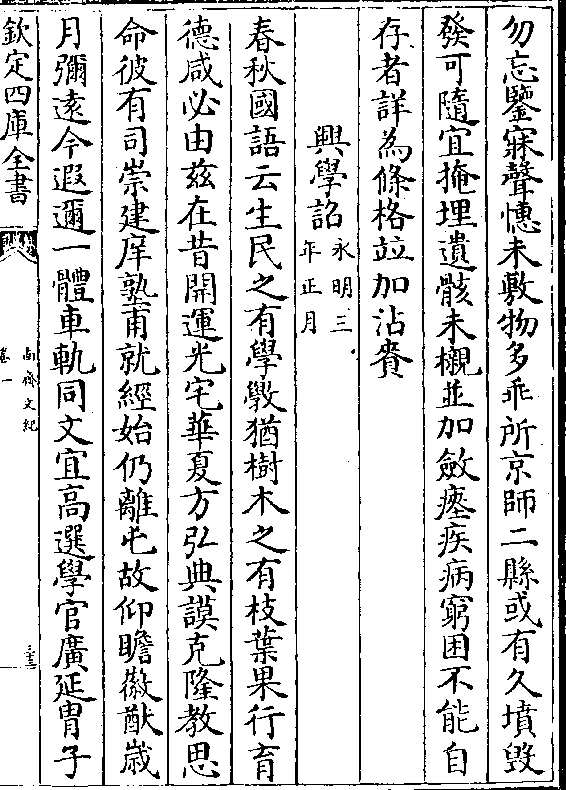 勿忘鑒寐聲憓未敷物多乖所京師二縣或有久墳毀
發可隨宜掩埋遺骸未櫬並加斂瘞疾病窮困不能自
存者詳為條格竝加沾賚
興學詔永明三年正月
春秋國語云生民之有學斆猶樹木之有枝葉果行育
德咸必由茲在昔開運光宅華夏方弘典謨克隆教思
命彼有司崇建庠塾甫就經始仍離屯故仰瞻徽猷歲
月彌遠今遐邇一體車軌同文宜高選學官廣延胄子
欽定四庫全書
南齊文紀
卷一